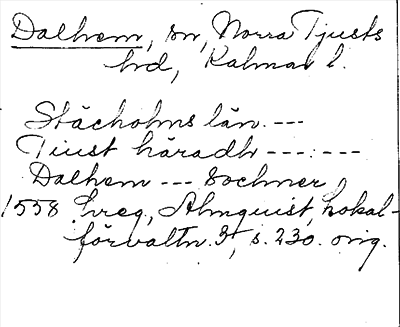 Dalhem, sn, Norra Tjusts
hd, Kalmar l.
Stächolms län. ---
Tiust häradh ---:---
Dalhem --- Sochner
1558 hreg, Almquist, Lokal-
förvaltn. 3, s. 230. orig.